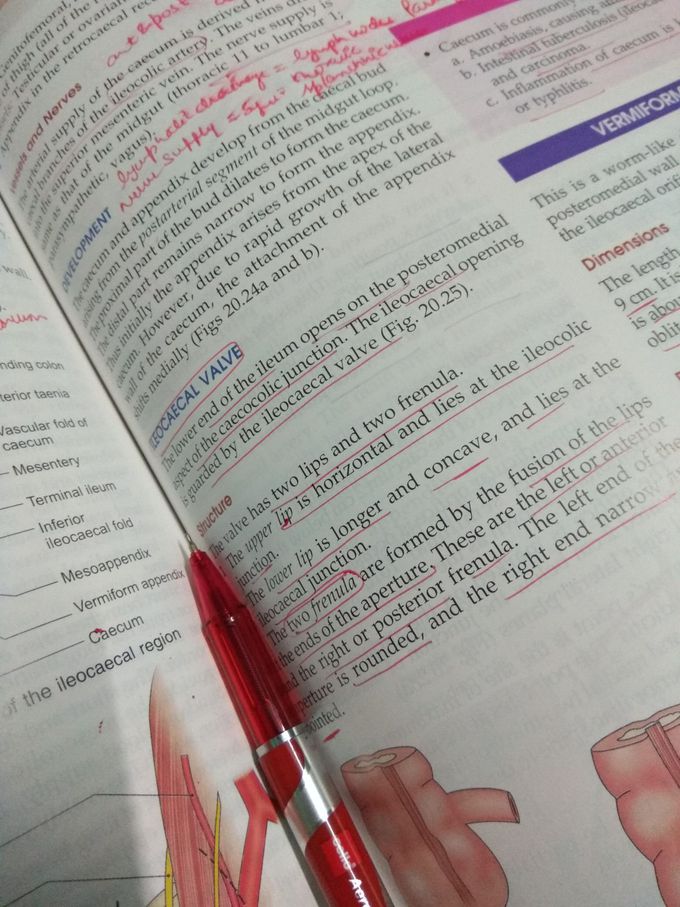 nding colon
terior taenia
Vascular fold of
caecum
Mesentery
Terminal ileum
Inferior
ileocaecal fold
Mesoappendix
Vermiform appendix
Caecum
of the ileocaecal region
genitofemoral,
of thigh (all of the
Testicular or ovarian
Appendix in the retrocaecal rec
ant & post
Vessels and Nerves
arterial supply of the caecum is derived
caecal branches of the ileocolic artery. The veins
the superior mesenteric vein. The nerve supply is
same as that of the midgut (thoracic 11 to lumbar 1;
parasympathetic, vagus).
lymphatic drainage = lymph nodes
nerve supply =
thoracic
splanchnic
DEVELOPMENT
The caecum and appendix develop from the caecal bud
arising from the postarterial segment of the midgut loop.
The proximal part of the bud dilates to form the caecum.
The distal part remains narrow to form the appendix.
Thus initially the appendix arises from the apex of the
caecum. However, due to rapid growth of the lateral
wall of the caecum, the attachment of the appendix
shifts medially (Figs 20.24a and b).
ILEOCAECAL VALVE
The lower end of the ileum opens on the posteromedial
aspect of the caecocolic junction. The ileocaecal opening
is guarded by the ileocaecal valve (Fig. 20.25).
Structure
The valve has two lips and two frenula.
The upper lip is horizontal and lies at the ileocolic
junction.
The lower lip is longer and concave, and lies at the
ileocaecal junction.
The two frenula are formed by the fusion of the lips
at the ends of the aperture. These are the left or anterior
and the right or posterior frenula. The left end of the
aperture is rounded, and the right end narrow
pointed.
• Caecum is commonly
a. Amoebiasis, causing
b. Intestinal tuberculosis (ileocae
and carcinoma.
c. Inflammation of caecum is
or typhlitis.
VERMIFORM
This is a worm-like
posteromedial wall
the ileocaecal orifi
Dimensions
The length
9 cm. It is
is abou
oblit